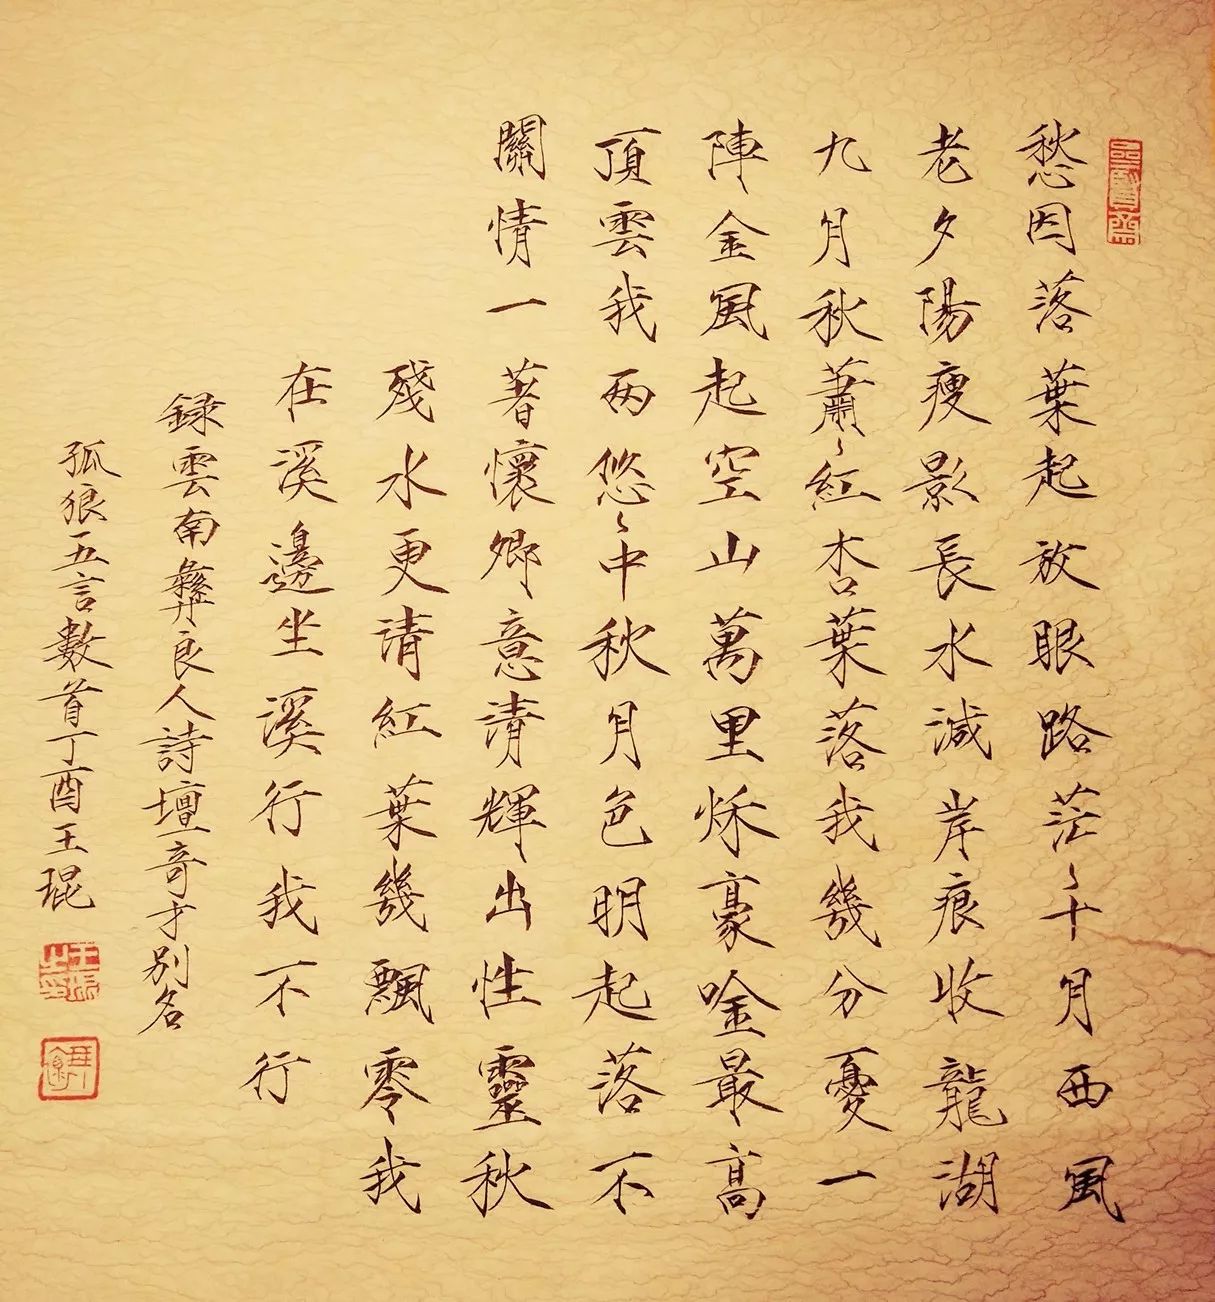 愁因落葉起放眼路茫〻十月西風
老夕陽瘦影長水減岸痕收龍湖
九月秋蕭〻紅杏葉落我幾分憂一
陣金風起空山萬里秌豪唫最高
頂雲我兩悠〻中秋月色明起落不
關情一著懷鄉意清輝出性靈秋
殘水更清紅葉幾飄零我
在溪邊坐溪行我不行
録雲南彝良人詩壇奇才別名
孤狼五言數首丁酉王琨